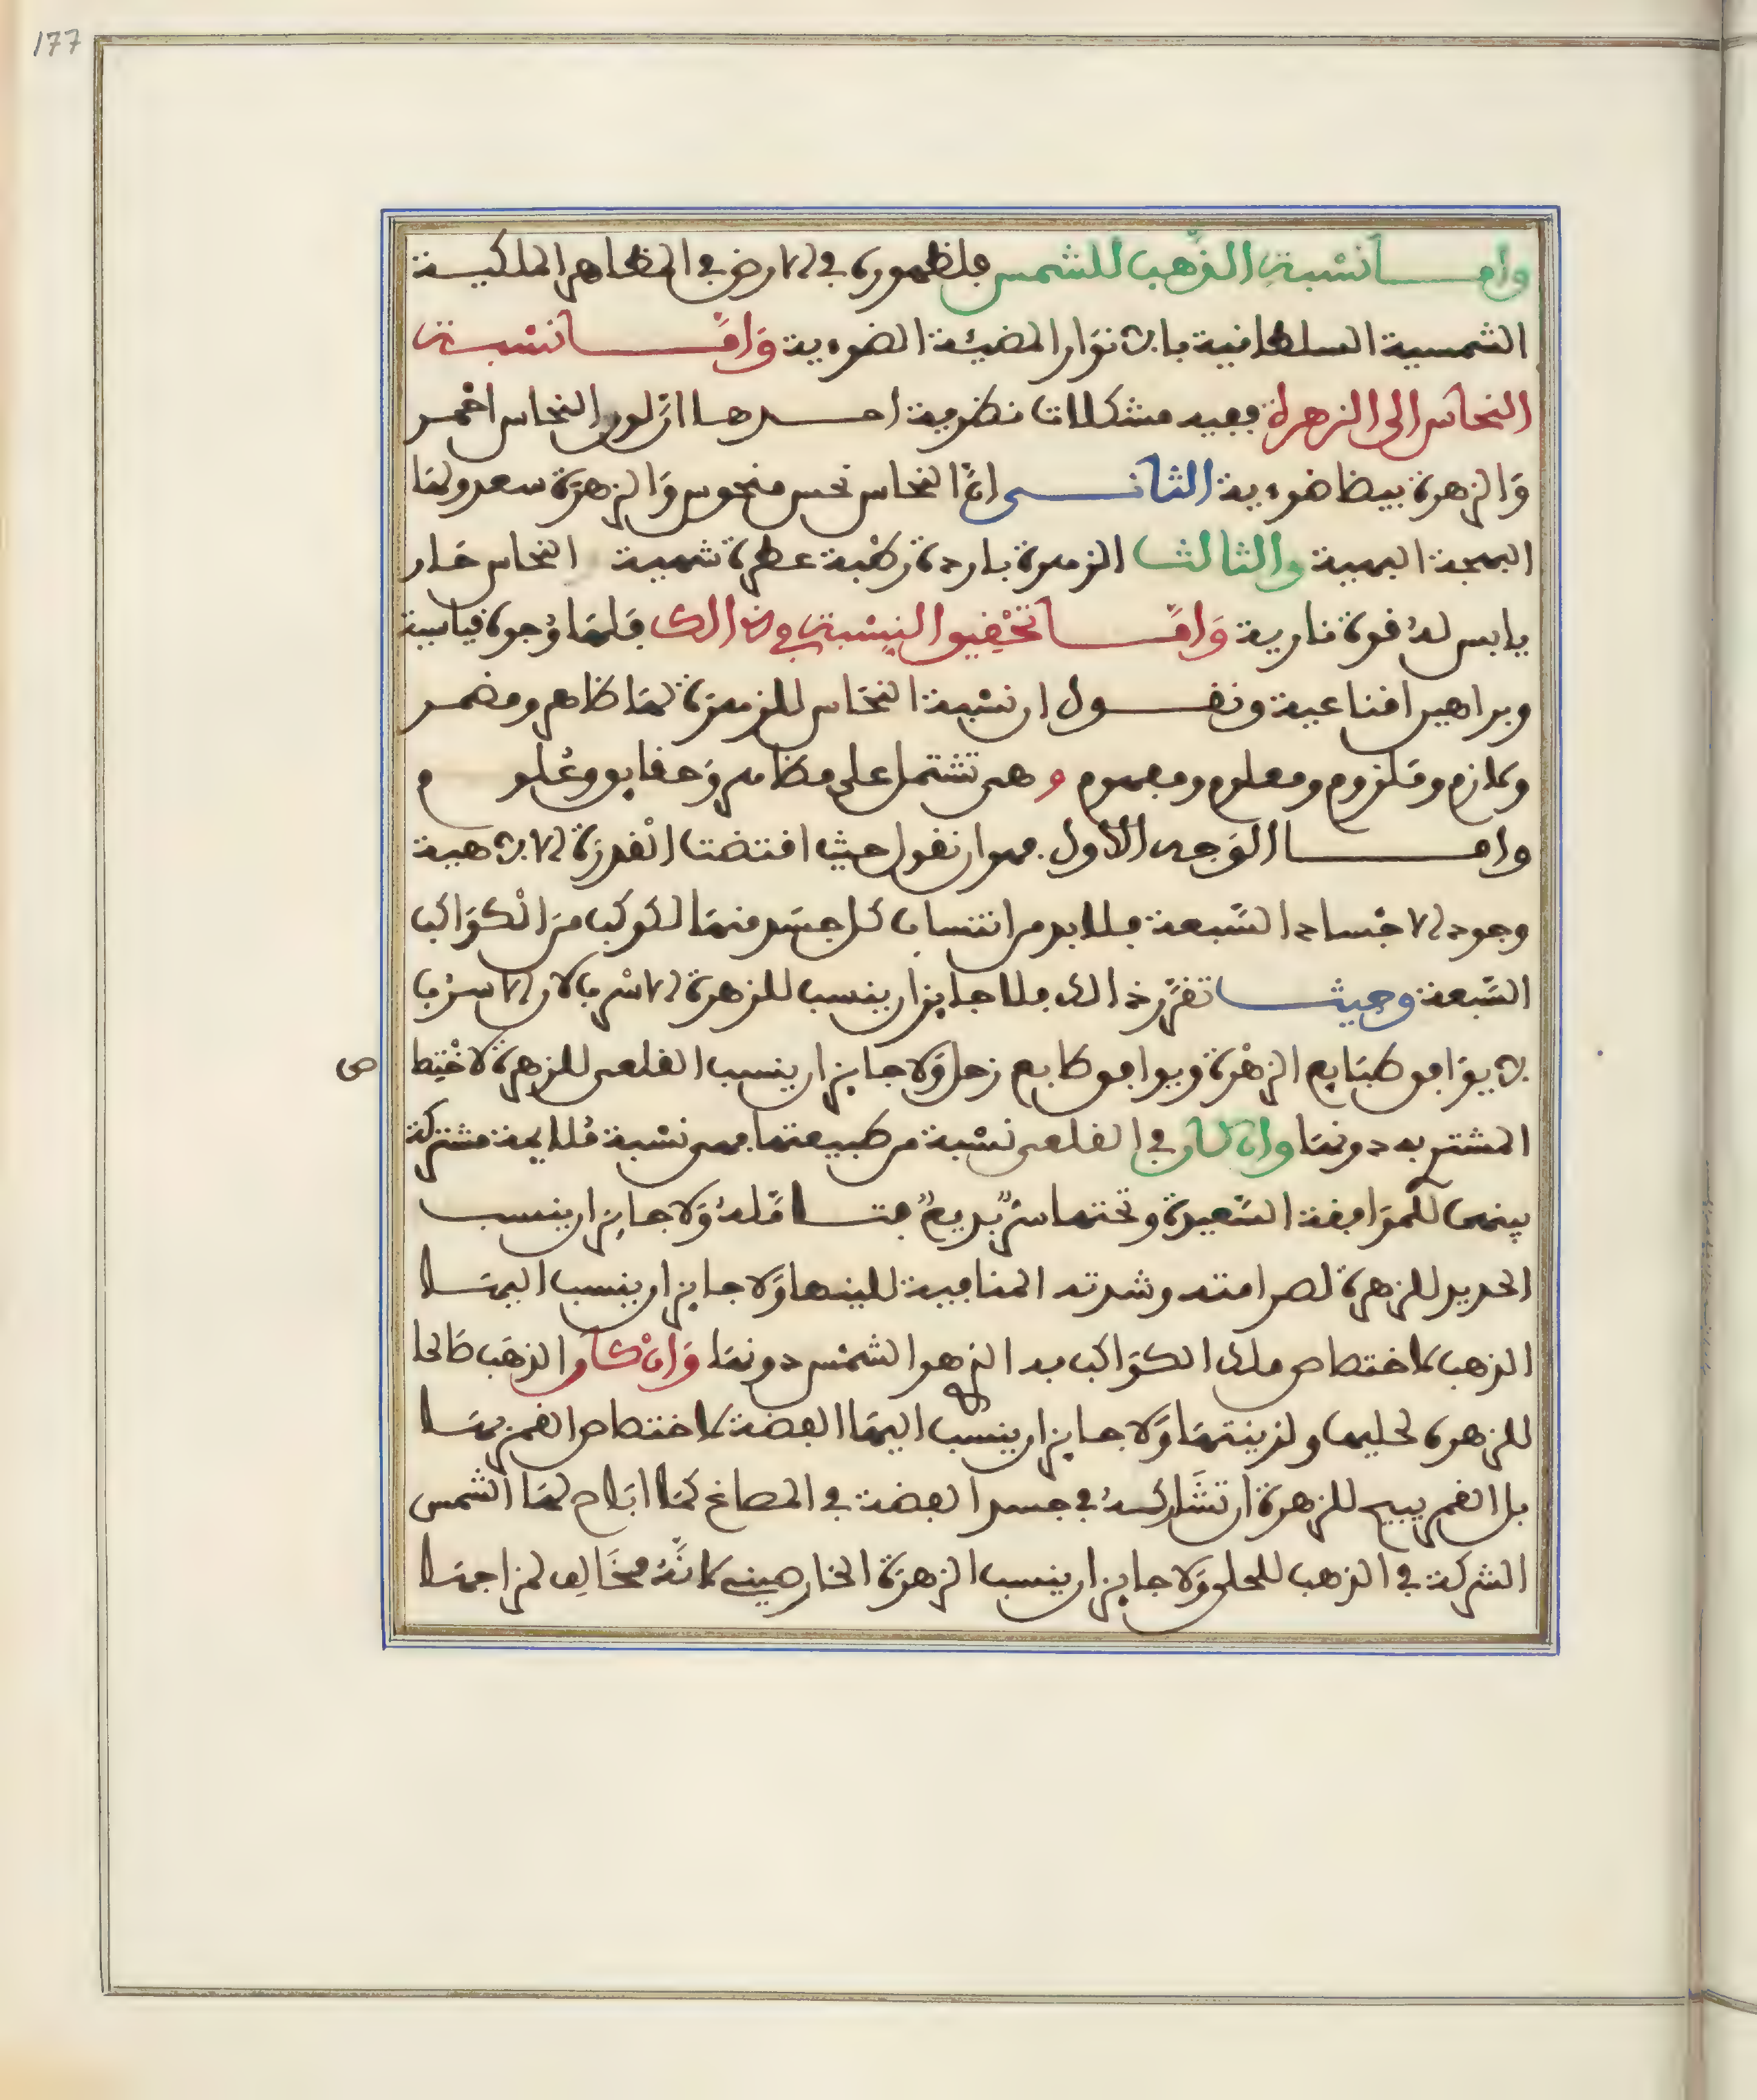 177
وامـــا نسبة الذهب للشمس فلظهوره في الارض في المظاهر الملكيـــة
الشمسية السلطانية بالانوار المضيئة الضوءية وَامَّـــا نسْبـــة
النحاس الى الزهرة ففيه مشكلات نظرية احـــدها ان لون النحاس احْمـــر
وَالزهرة بيضا ضوءية الثانـــى انّ النحاس نحس منحوس وَالزهرَة سعد ولهَا
البهجة البهية والثالث الزهرة باردة رطْبة عطرة شهية النحاس حَار
يابس لهُ قوة نارية وَامَّـــا تحْقيق النِسْبة في ذالك فَلهَا وُجوه قياسية
وبراهين اقناعية ونقـــول ان نسْبة النحَاس للزهرَة لهَا ظاهر ومضمـــر
ولازم ومَلزوم ومعلوم ومفهوم و هى تشتمل على مظَاهر وَحقايق وعُلو م
وامـــا الوَجه الاول فهو ان نقول حيث اقتضت الْقدرَة الالاهية
وجود الاجْساد السَّبعة فلا بد من انتساب كل جسَد منهَا لكوكب مِنَ الْكوَاكب
السَّبعة وحيث تقرَّر ذالك فلا جايز ان ينسب للزهرة الاسْرب لان الاسرُب
لا يوَافق طبَايع الزهْرَة ويوافق طبايع زحل وَلا جايز ان ينسب القلعى للزهرة لاخْتِصا ص
المشترى به دونهَا وان كان في القلعى نسْبة من طبيعتها فهى نسْبة مُلايمة مشتركة
بينهما للموَافقة السَّعيدة وتحتها سرٌّ بديعٌ فتـــامَّلهُ وَلا جايز ان ينسب
الحديد للزهرة لصرامته وشدته المنافية للينها وَلا جايز ان ينسب اليهَـــا
الذهب لاختصاص ملك الكوَاكب به الذى هو الشمْس دونهَا وَانْ كان الذهَب صَالحا
للزهرة لحليها ولزينتهَا وَلا جايز ان ينسب اليهَا الفضة لاختصاص القمر بهَـــا
بل القمر يبيح للزهرة ان تشَاركـــهُ في جسد الفضة في المصاغ كمَا ابَاح لهَا الشمس
الشركة في الذهب للحلى وَلا جايز ان ينسب الزهرَة الخارصينى لانَّهُ مخَالف لمزاجهَـــا